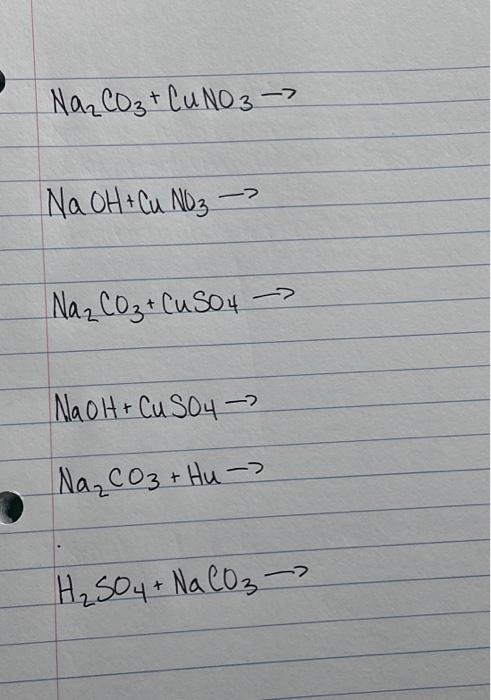 Na₂CO₃ + CuNO₃ →
NaOH + CuNO₃ →
Na₂CO₃ + CuSO₄ →
NaOH + CuSO₄ →
Na₂CO₃ + Hu →
H₂SO₄ + NaCO₃ →